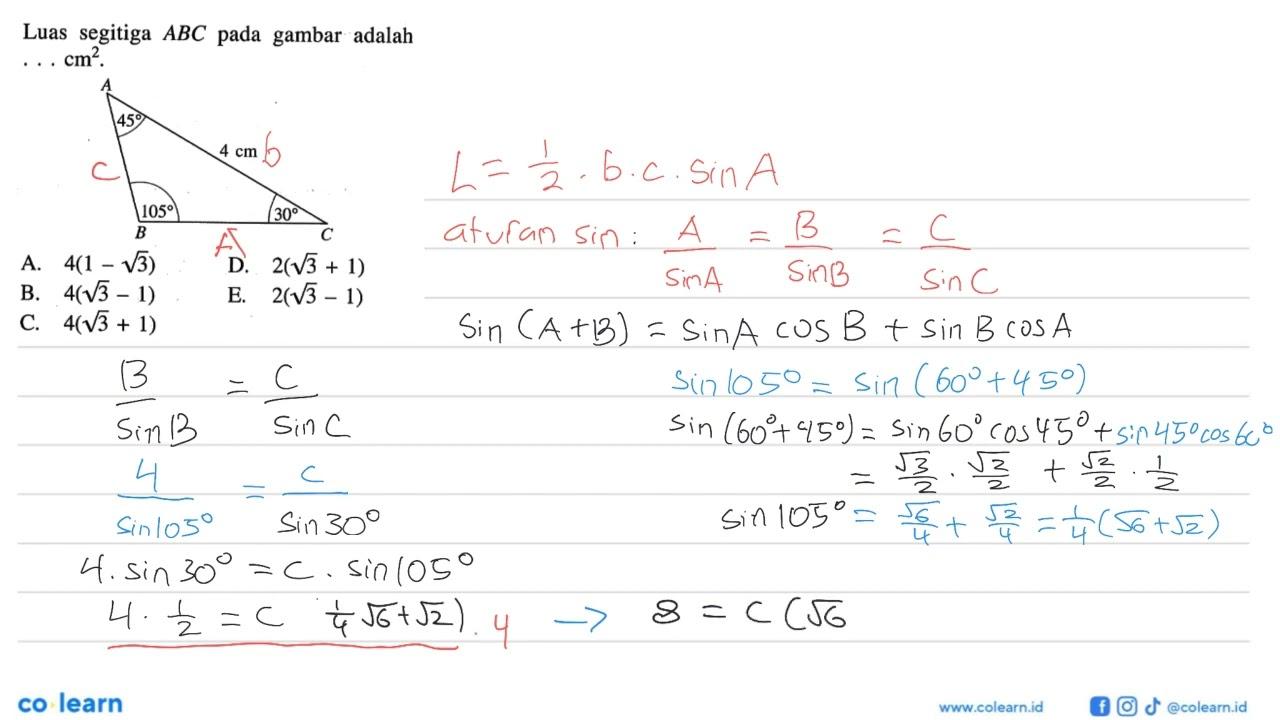 Luas segitiga ABC pada gambar adalah
... cm².
A
45°
4 cm b
c
105° 30°
B A C
A. 4(1 - √3) D. 2(√3 + 1)
B. 4(√3 - 1) E. 2(√3 - 1)
C. 4(√3 + 1)
L = 1/2 . b.c. sin A
aturan sin: A/sin A = B/sin B = C/sin C
sin (A+B) = sin A cos B + sin B cos A
B/sin B = C/sin C
4/sin 105° = c/sin 30°
4. sin 30° = c . sin 105°
4. 1/2 = c 1/4 √6+√2) . 4 → 8 = c (√6
sin 105° = sin (60° + 45°)
sin (60°+45°) = sin 60° cos 45° + sin 45° cos 60°
= √3/2 . √2/2 + √2/2 . 1/2
sin 105° = √6/4 + √2/4 = 1/4 (√6+√2)
co learn
www.colearn.id
@colearn.id